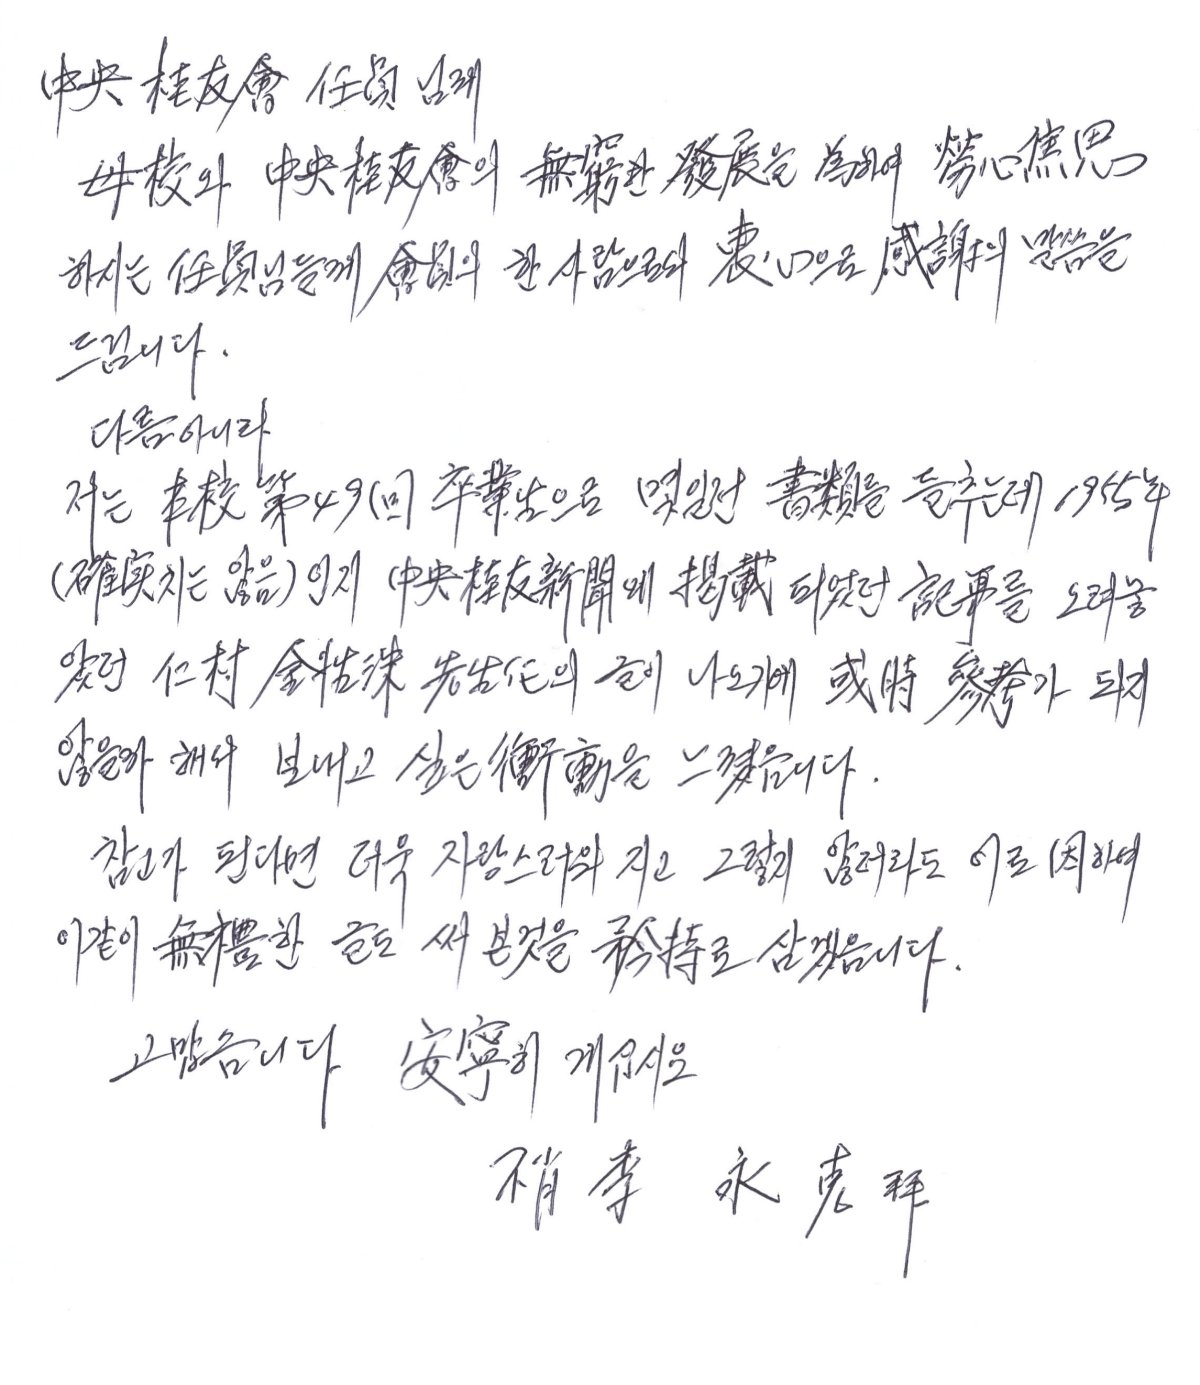 中央 桂友會 任員 님께
母校와 中央桂友會의 無窮한 發展을 為하여 勞心焦思
하시는 任員님들께 會員의 한 사람으로서 衷心으로 感謝의 말씀을
드립니다.
다름아니라
저는 本校 第49回 卒業生으로 몇일전 書類를 들추는데 1955年
(確実치는 않음)인지 中央桂友新聞에 揭載 되었던 記事를 오려놓
았던 仁村 金性洙 先生任의 글이 나오기에 或時 參考가 되지
않을까 해서 보내고 싶은 衝動을 느꼈읍니다.
참고가 된다면 더욱 자랑스러워 지고 그렇지 않더라도 이로 因하여
이같이 無禮한 글도 써 본것을 矜持로 삼겠읍니다.
고맙습니다 安寧히 계십시오
不肖 李 永 惠 拜